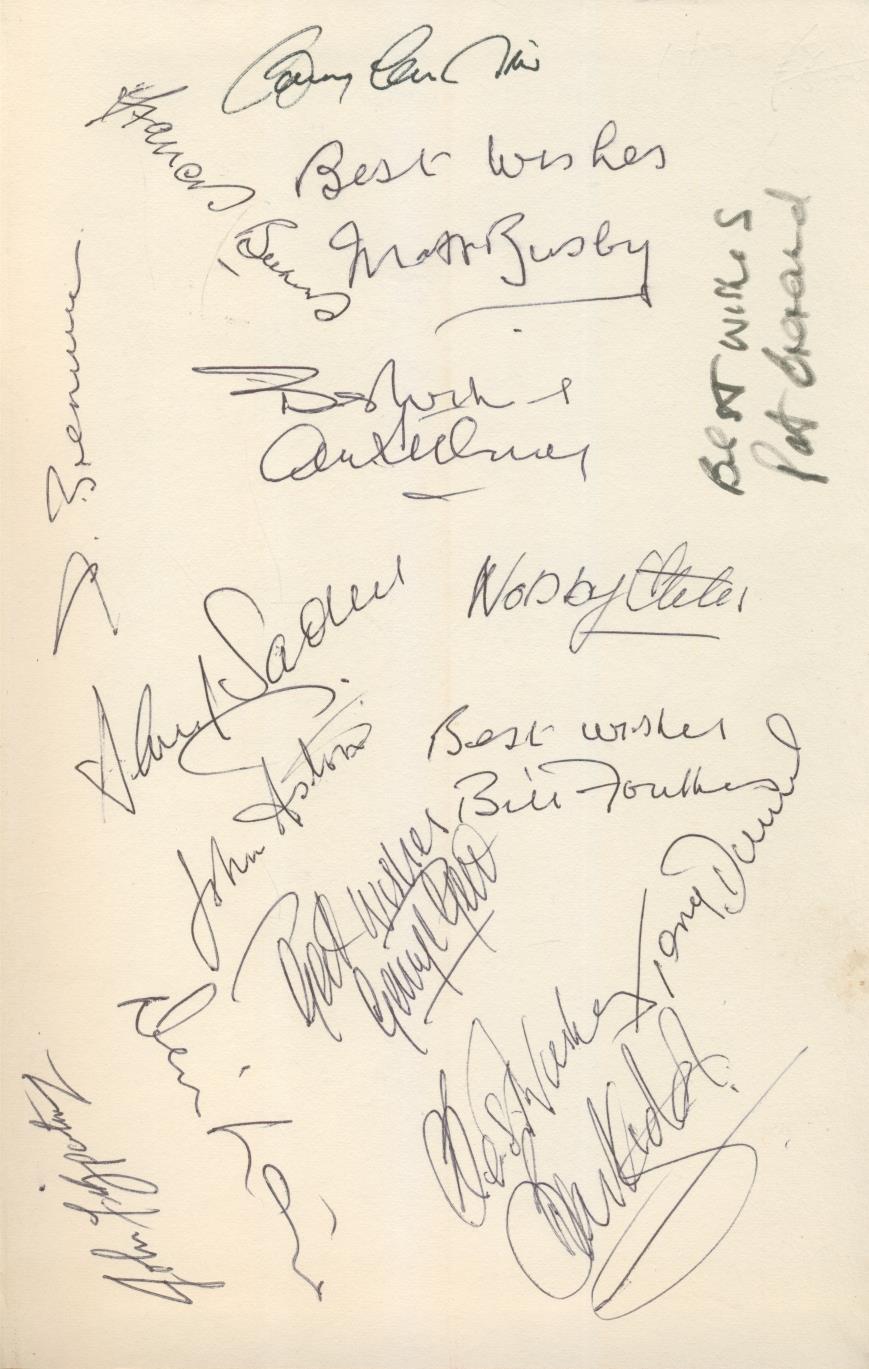 Francis Burns
Best Wishes
Matt Busby
Best Wishes
Pat Crerand
Best wishes
S. Brennan
Nobby Stiles
David Sadler
John Aston
Best wishes
Bill Foulkes
Best Wishes
George Best
Tony Dunne
Best Wishes
Brian Kidd
Denis Law
John Fitzpatrick